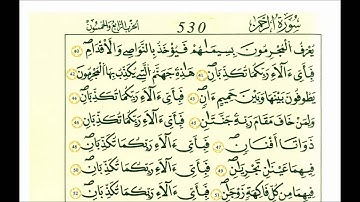 سُورَةُ الرَّحْمٰن 530 الحزب الرابع والخمسون
يُعْرَفُ الْمُجْرِمُونَ بِسِيمَاهُمْ فَيُؤْخَذُ بِالنَّوَاصِي وَالْأَقْدَامِ
فَبِأَيِّ آلَاءِ رَبِّكُمَا تُكَذِّبَانِ هَٰذِهِ جَهَنَّمُ الَّتِي يُكَذِّبُ بِهَا الْمُجْرِمُونَ
يَطُوفُونَ بَيْنَهَا وَبَيْنَ حَمِيمٍ آنٍ فَبِأَيِّ آلَاءِ رَبِّكُمَا تُكَذِّبَانِ
وَلِمَنْ خَافَ مَقَامَ رَبِّهِ جَنَّتَانِ فَبِأَيِّ آلَاءِ رَبِّكُمَا تُكَذِّبَانِ
ذَوَاتَا أَفْنَانٍ ٤٧ فَبِأَيِّ آلَاءِ رَبِّكُمَا تُكَذِّبَانِ ٤٨
فِيهِمَا عَيْنَانِ تَجْرِيَانِ ٤٩ فَبِأَيِّ آلَاءِ رَبِّكُمَا تُكَذِّبَانِ ٥٠
فِيهِمَا مِنْ كُلِّ فَاكِهَةٍ زَوْجَانِ ٥١ فَبِأَيِّ آلَاءِ رَبِّكُمَا تُكَذِّبَانِ ٥٢